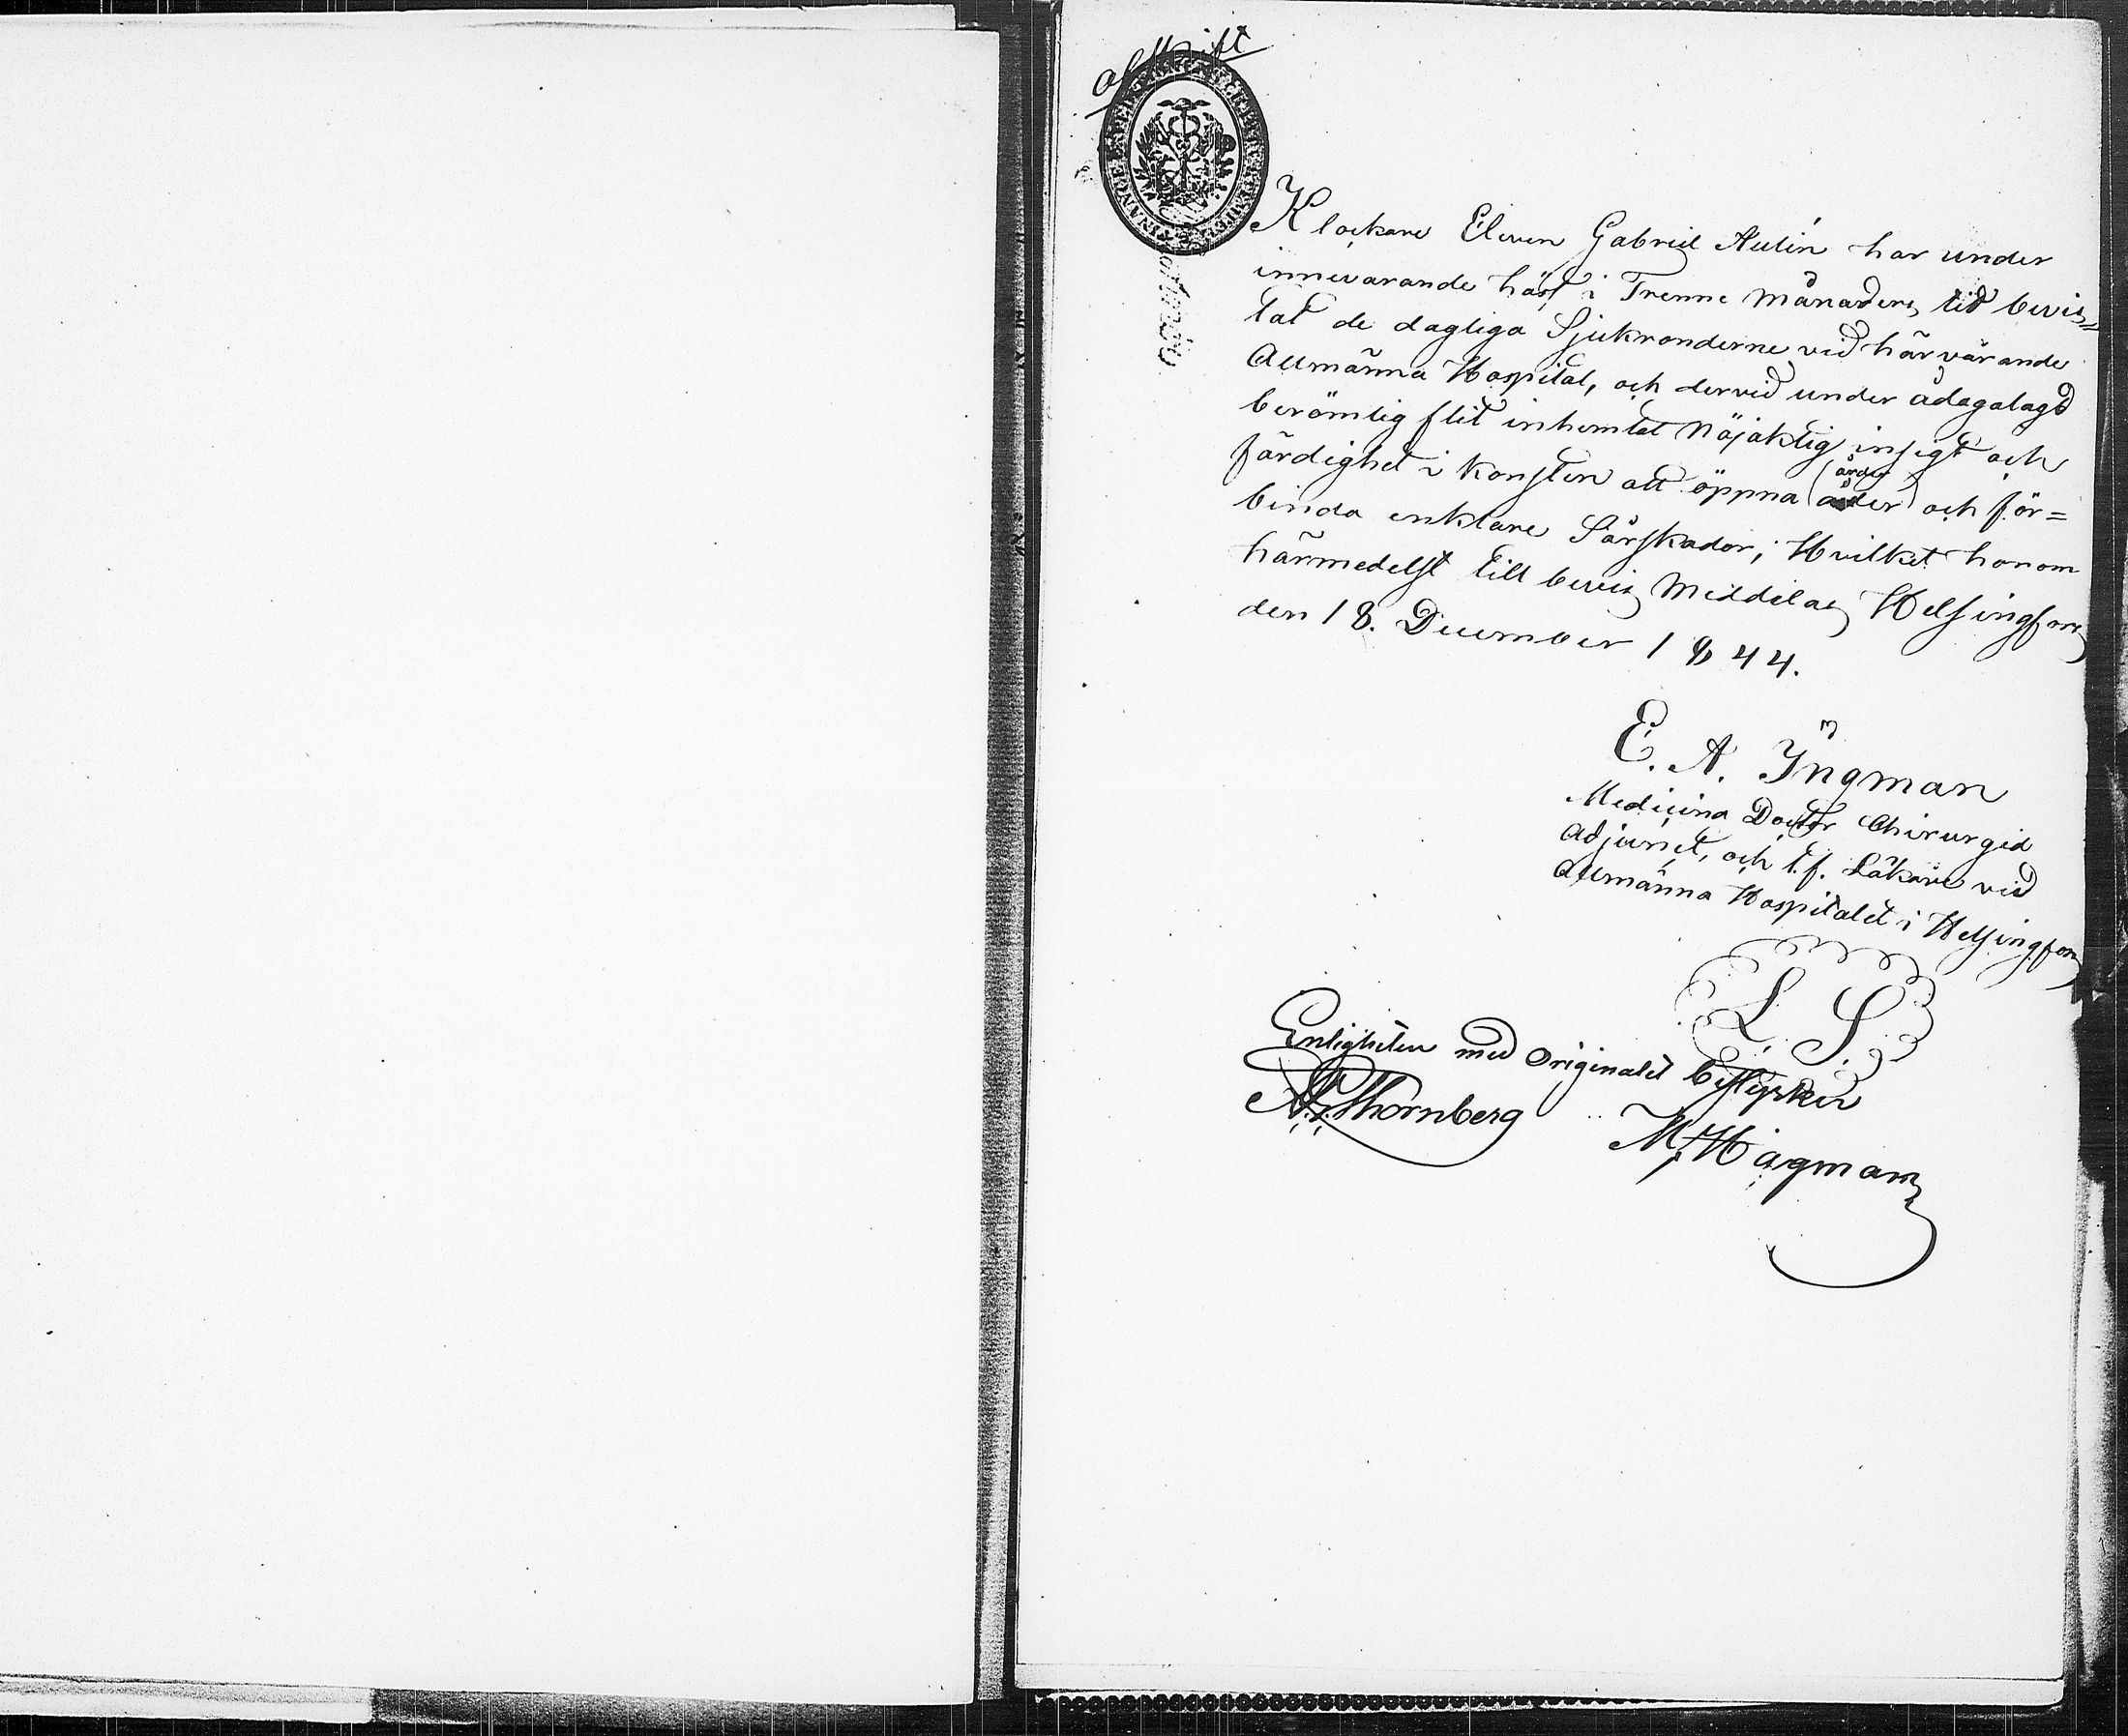 afskrift
Klockare Eleven Gabriel Aulin har under
innevarande höst i Trenne månaders tid bevis=
tat de dagliga Sjukronderne vid härvarande
Allmänna Hospital, och dervid under ådagalagd
berömlig flit inhemtat nöjaktig insigt och
färdighet i konsten att öppna (åder) och för=
åder
binda enklare Sårskador; Hvilket honom
härmedelst till bevis meddelas, Helsingfors
den 18. December 1844.
E. A. Ingman
Medicina Doctor Chirurgiæ
Adjunct, och t.f. Läkare vid
Allmänna Hospitalet i Helsingfors
L. S.
Enligheten med Originalet bestyrker
Thornberg
M. Hägman